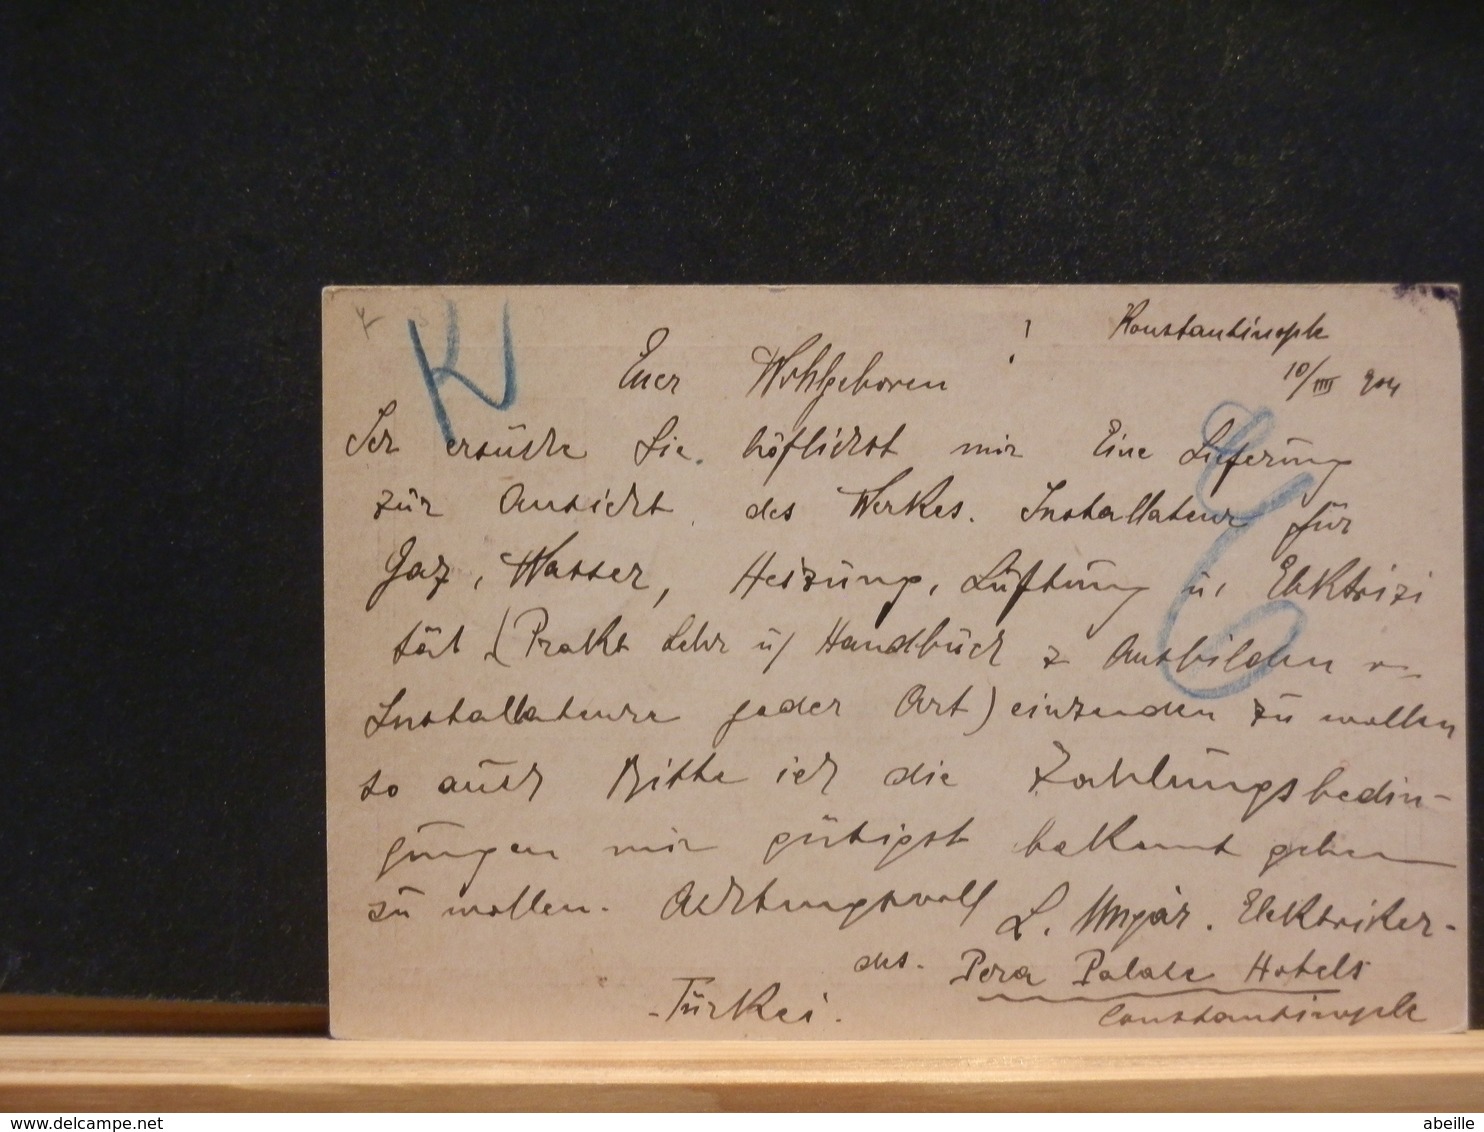 Konstantinople
Euer Wohlgeboren !
10/III 904
Ich ersuche Sie. höflichst mir Eine Lieferung
zur Ansicht. des Werkes. Installateur für
Gaz, Wasser, Heizung, Lüftung u, Elektrizi
tät (Prakt Lehr u/ Handbuch z Ausbilden v
Installateure jeder Art) einzenden zu wollen
so auch Bitte ich die Zahlungsbedin-
gungen mir gütigst bekannt geben
zu wollen. Achtungsvoll L. Ungár. Elektriker-
des. Pera Palace Hotels
-Türkei. Constantinople
www.delcampe.net
abeille